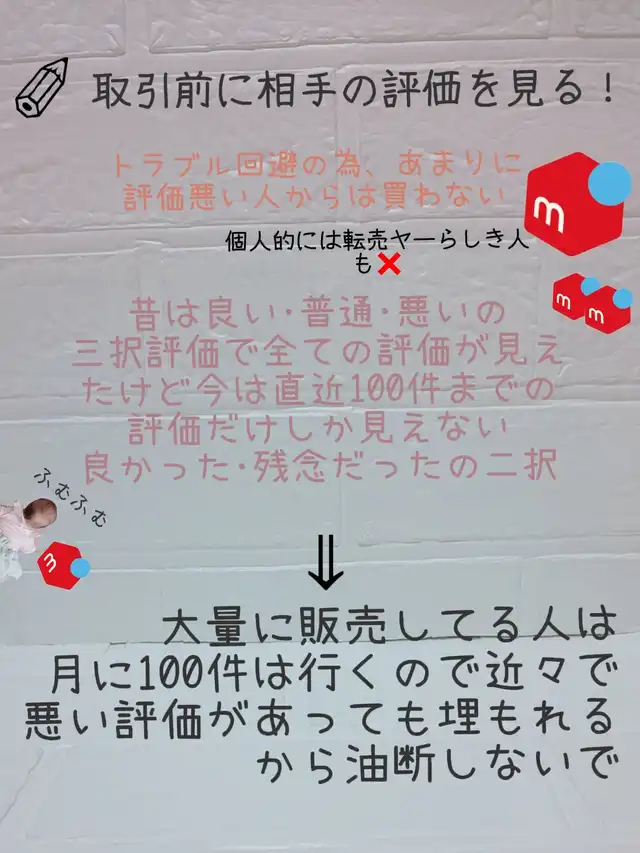 取引前に相手の評価を見る！
トラブル回避の為、あまりに
評価悪い人からは買わない
個人的には転売ヤーらしき人
も❌
昔は良い･普通･悪いの
三択評価で全ての評価が見え
たけど今は直近100件までの
評価だけしか見えない
良かった･残念だったの二択
ふむふむ
⇓
大量に販売してる人は
月に100件は行くので近々で
悪い評価があっても埋もれる
から油断しないで